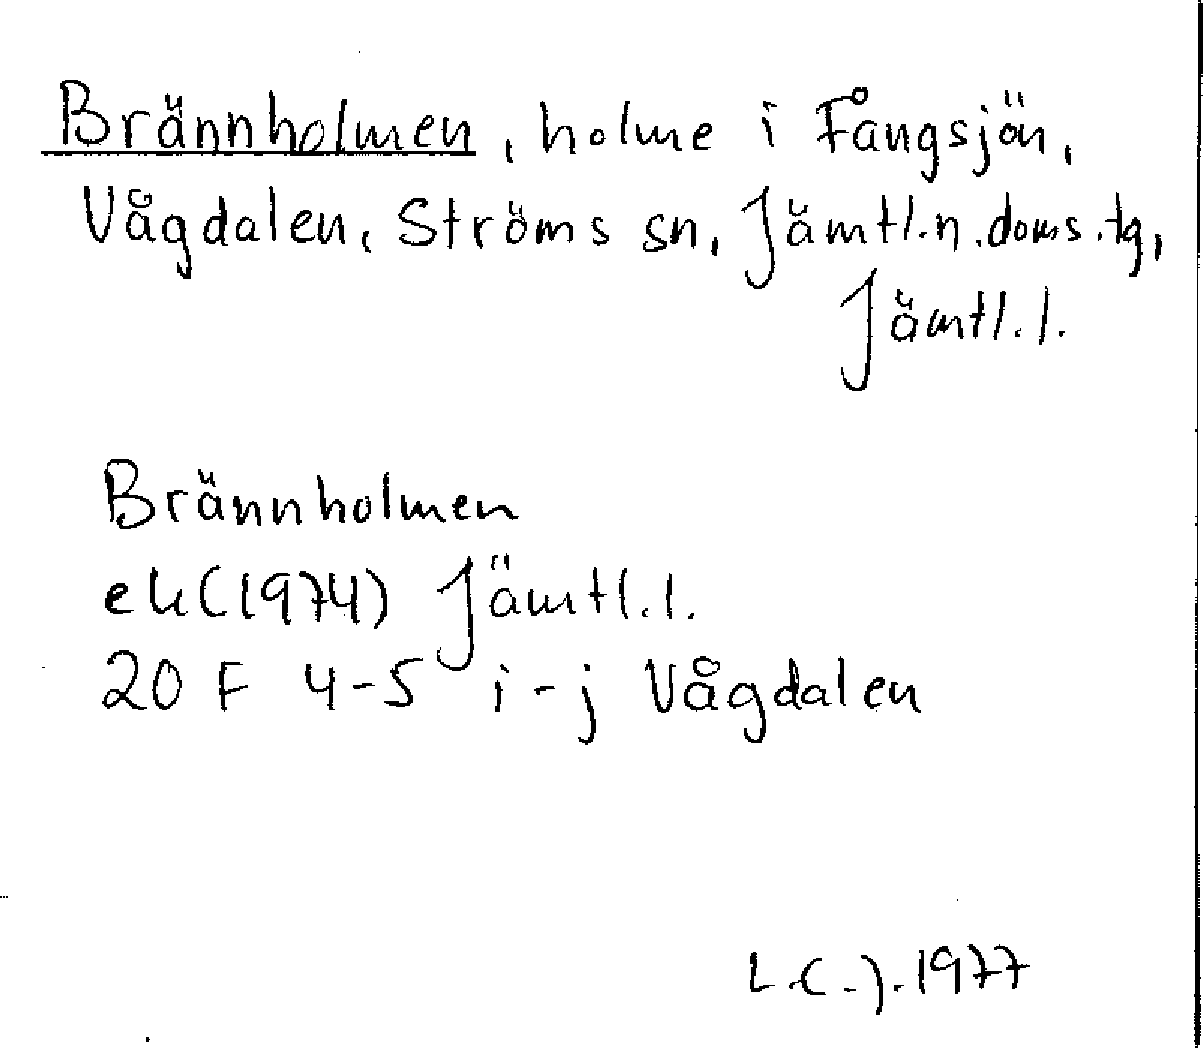 Brännholmen, holme i Fångsjön,
Vågdalen, Ströms sn, Jämtl.n.doms.tg,
Jämtl.l.
Brännholmen
ek(1974) Jämtl.l.
20 F 4-5 i-j Vågdalen
L.C.J.1977